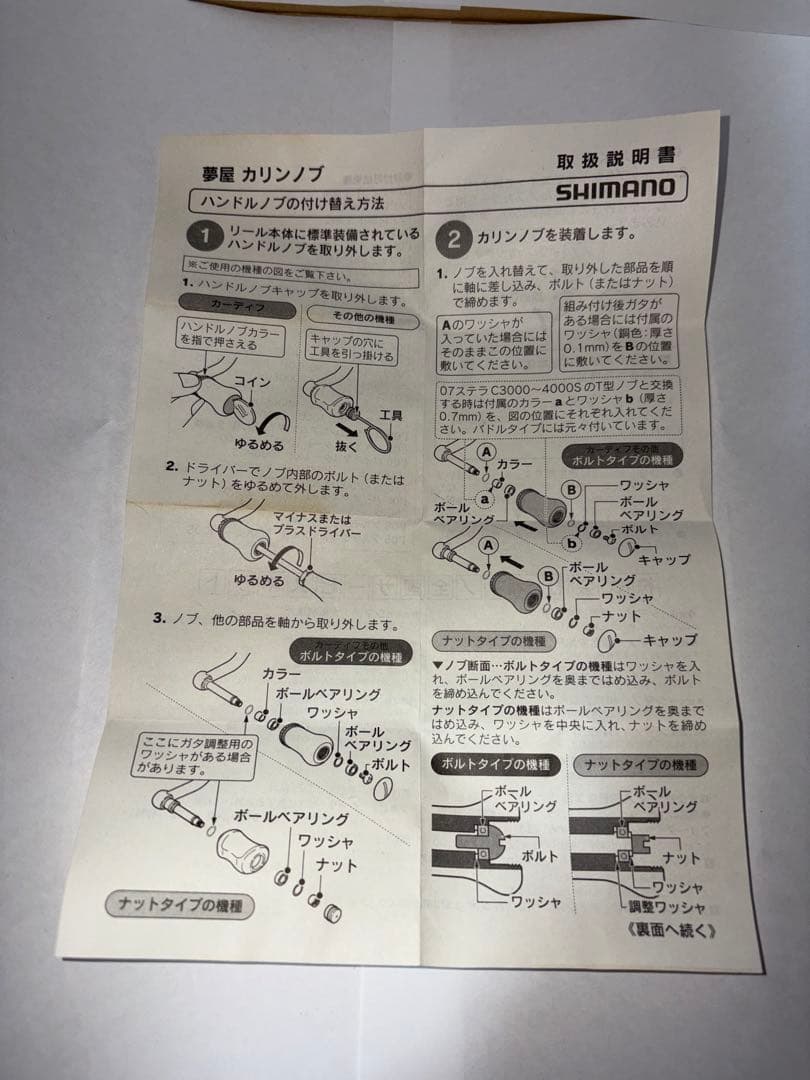 夢屋 カリンノブ
取扱説明書
ハンドルノブの付け替え方法
SHIMANO
1
リール本体に標準装備されている
ハンドルノブを取り外します。
※ご使用の機種の図をご覧下さい。
1. ハンドルノブキャップを取り外します。
カーディフ
その他の機種
ハンドルノブカラー
を指で押さえる
キャップの穴に
工具を引っ掛ける
コイン
ゆるめる
工具
抜く
2. ドライバーでノブ内部のボルト（または
ナット）をゆるめて外します。
マイナスまたは
プラスドライバー
ゆるめる
3. ノブ、他の部品を軸から取り外します。
カーディフその他
ボルトタイプの機種
カラー
ボールベアリング
ワッシャ
ボール
ベアリング
ボルト
ここにガタ調整用の
ワッシャがある場合
があります。
ボールベアリング
ワッシャ
ナット
ナットタイプの機種
2
カリンノブを装着します。
1. ノブを入れ替えて、取り外した部品を順
に軸に差し込み、ボルト（またはナット）
で締めます。
Aのワッシャが
入っていた場合には
そのままこの位置に
敷いてください。
組み付け後ガタが
ある場合には付属の
ワッシャ（銅色：厚さ
0.1mm）をBの位置
に敷いてください。
07ステラC3000〜4000SのT型ノブと交換
する時は付属のカラーaとワッシャb（厚さ
0.7mm）を、図の位置にそれぞれ入れてくだ
さい。パドルタイプには元々付いています。
カーディフその他
ボルトタイプの機種
A
カラー
a
ボール
ベアリング
B
ワッシャ
ボール
ベアリング
ボルト
b
キャップ
A
B
ボール
ベアリング
ワッシャ
ナット
キャップ
ナットタイプの機種
▼ノブ断面…ボルトタイプの機種はワッシャを入
れ、ボールベアリングを奥まではめ込み、ボルト
を締め込んでください。
ナットタイプの機種はボールベアリングを奥まで
はめ込み、ワッシャを中央に入れ、ナットを締め
込んでください。
ボルトタイプの機種
ナットタイプの機種
ボール
ベアリング
ボルト
ワッシャ
ボール
ベアリング
ナット
ワッシャ
調整ワッシャ
《裏面へ続く》